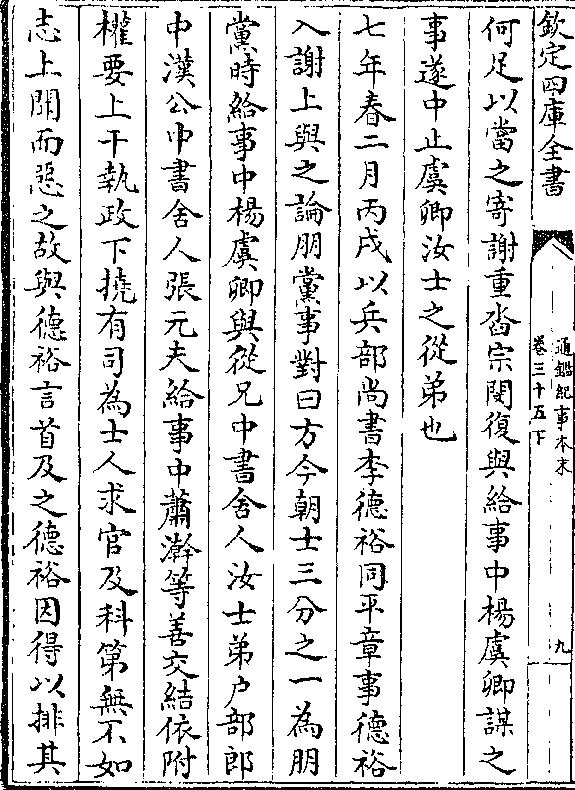 欽定四庫全書
通鑑紀事本末
卷三十五下
九
何足以當之寄謝重沓宗閔復與給事中楊虞卿謀之
事遂中止虞卿汝士之從弟也
七年春二月丙戌以兵部尚書李德裕同平章事德裕
入謝上與之論朋黨事對曰方今朝士三分之一為朋
黨時給事中楊虞卿與從兄中書舍人汝士弟户部郎
中漢公中書舍人張元夫給事中蕭澣等善交結依附
權要上干執政下撓有司為士人求官及科第無不如
志上聞而惡之故與德裕言首及之德裕因得以排其